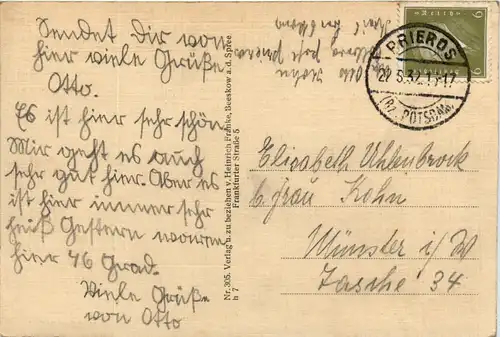 Sendet Dir von
hier viele Grüße
Otto.
Es ist hier sehr schön
Mir geht es auch
sehr gut hier. Aber es
ist hier immer sehr
heiß Gestern waren
hier 46 Grad.
Viele Grüße
von Otto
Otto Kohn
Nr. 305. Verlag u. zu beziehen v. Heinrich Franke, Beeskow a. d. Spree
Frankfurter Straße 5
h 7
PRIEROS
(Bz. POTSDAM)
6
6
Elisabeth Uhlenbrock
b. Frau Kohn
Münster i/W
Tasche 34